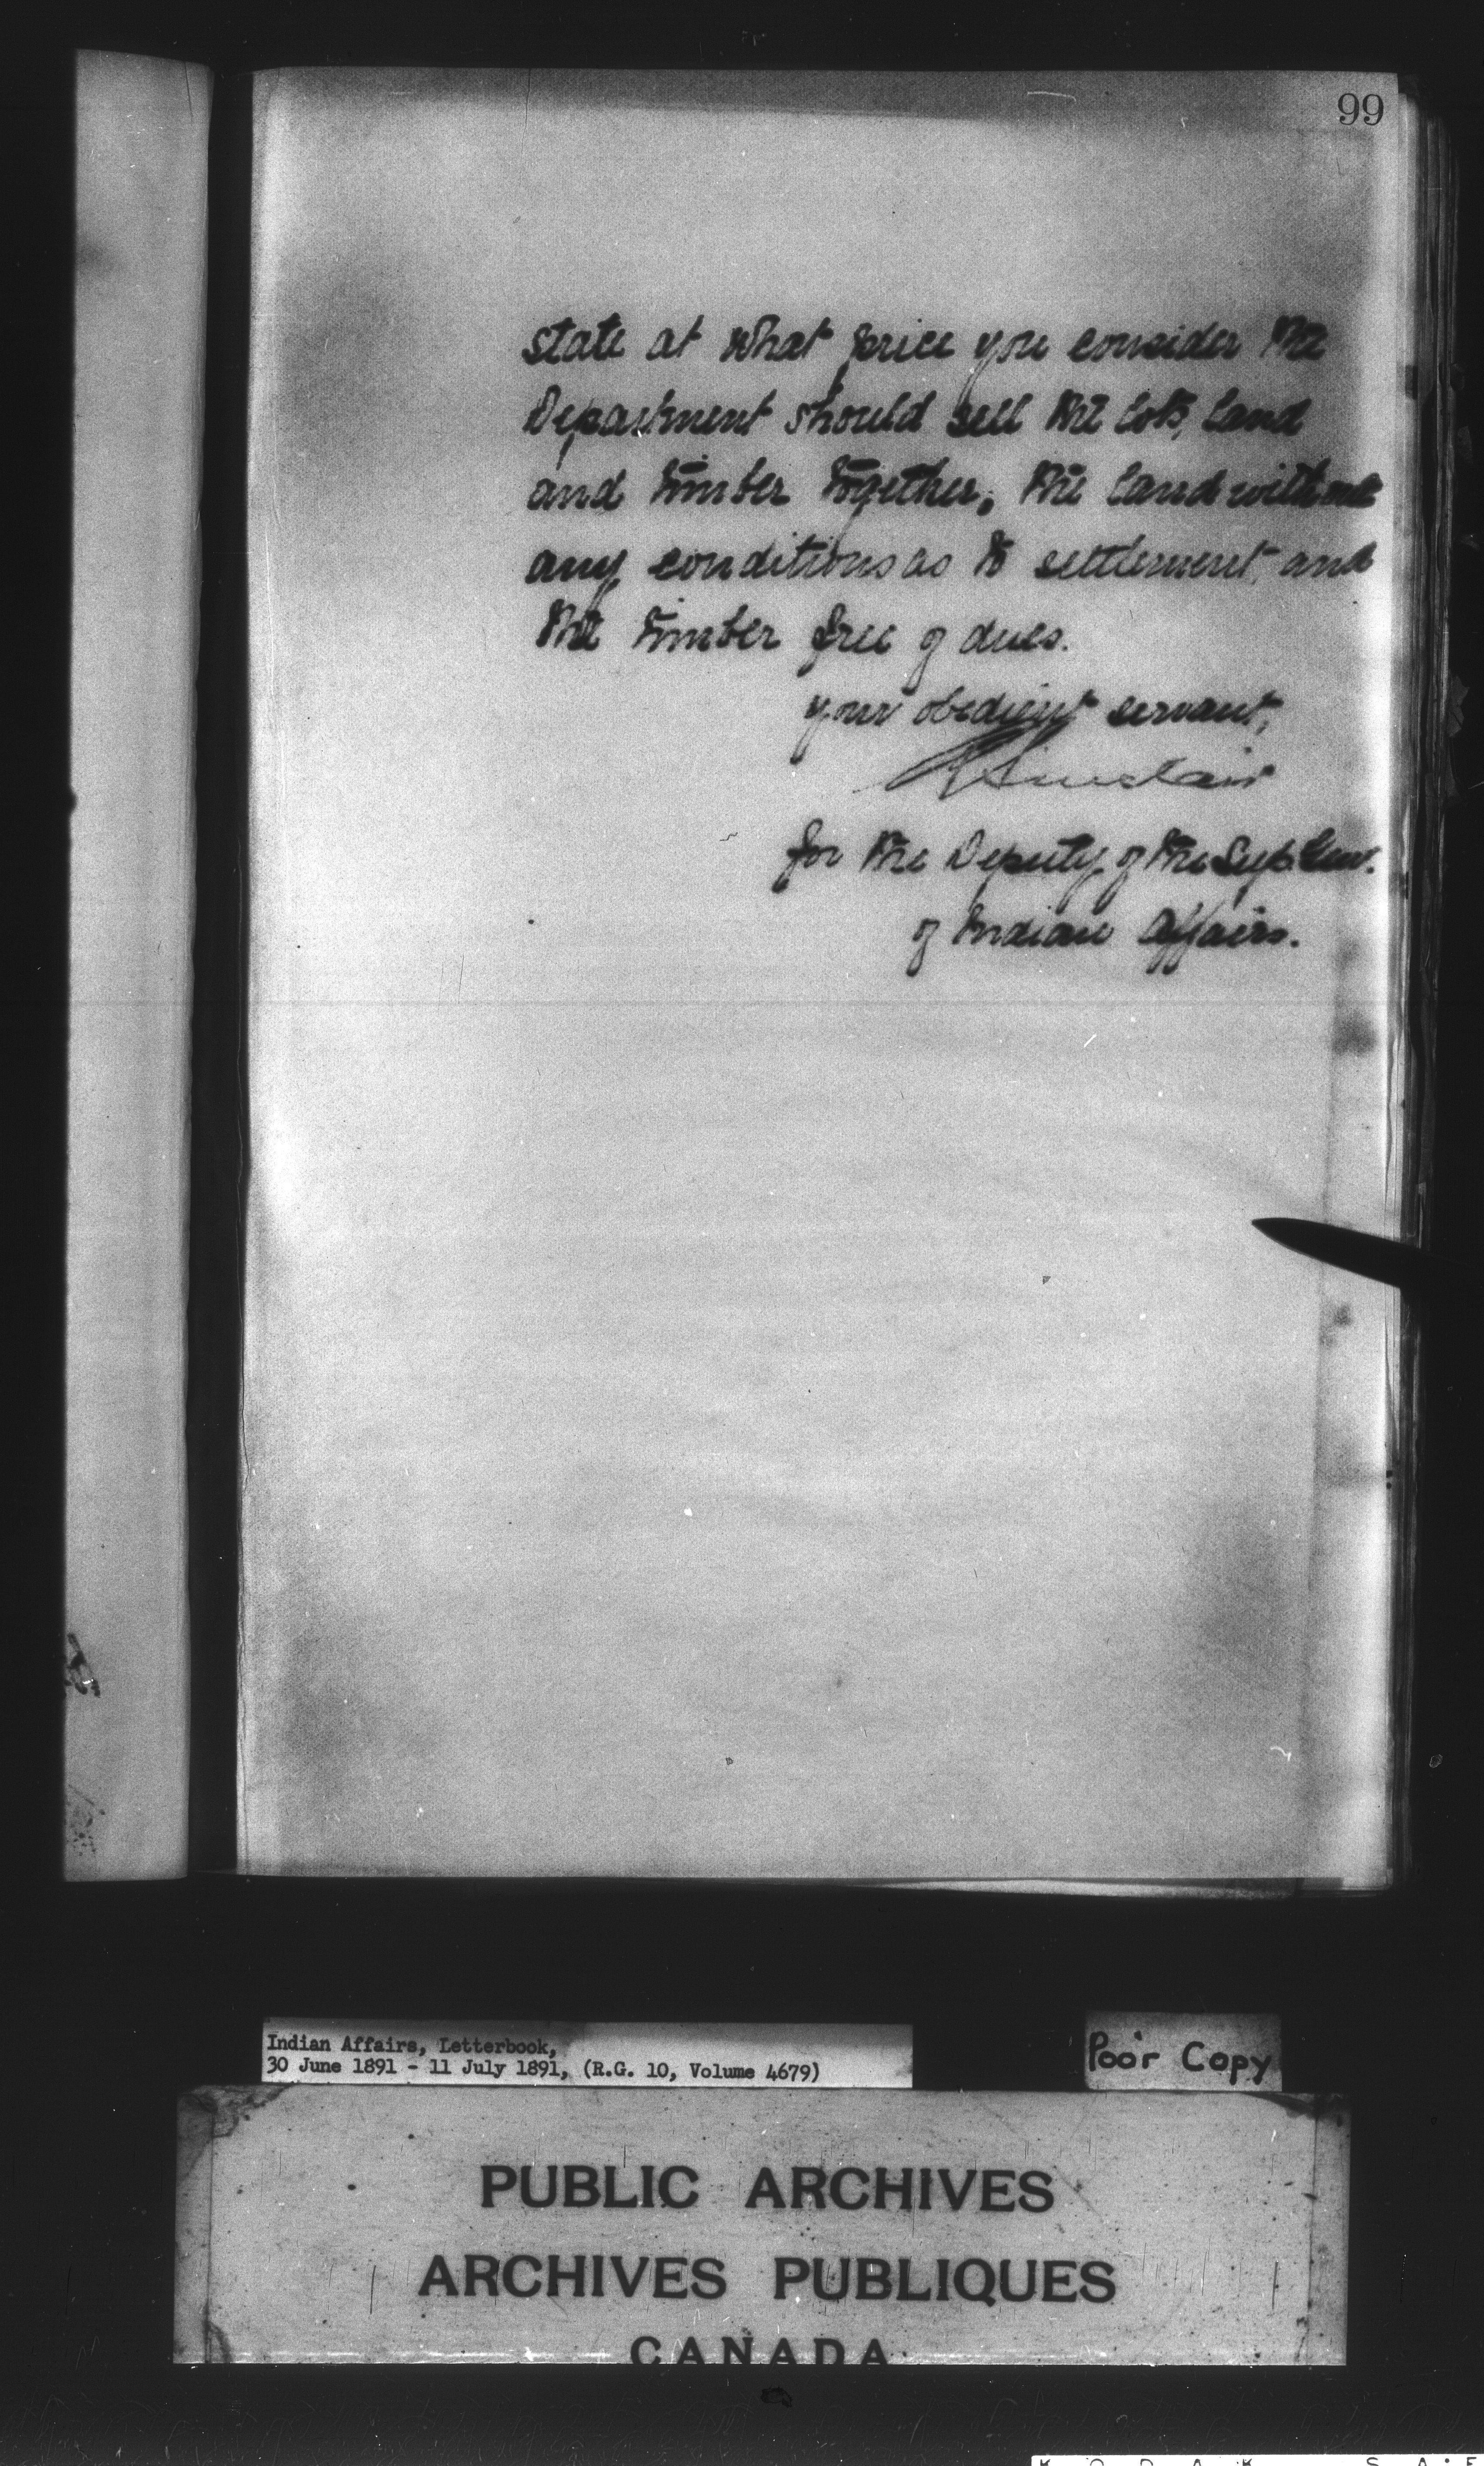 99
state at what price you consider the
Department should sell the lots, land
and timber together, the land without
any conditions as to settlement, and
the timber free of dues.
your obedient servant,
Sinclair
for the Deputy of the Supt. Gen.
of Indian Affairs.
Indian Affairs, Letterbook,
30 June 1891 - 11 July 1891, (R.G. 10, Volume 4679)
Poor Copy
PUBLIC ARCHIVES
ARCHIVES PUBLIQUES
CANADA